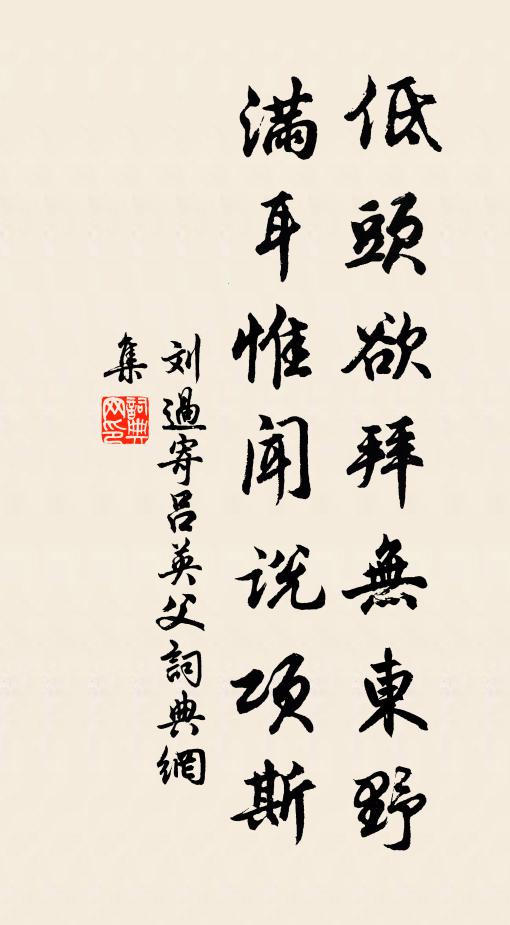 低頭欲拜無東野
滿耳惟聞說項斯
刘過寄吕英父詞典網
集
詞典網印